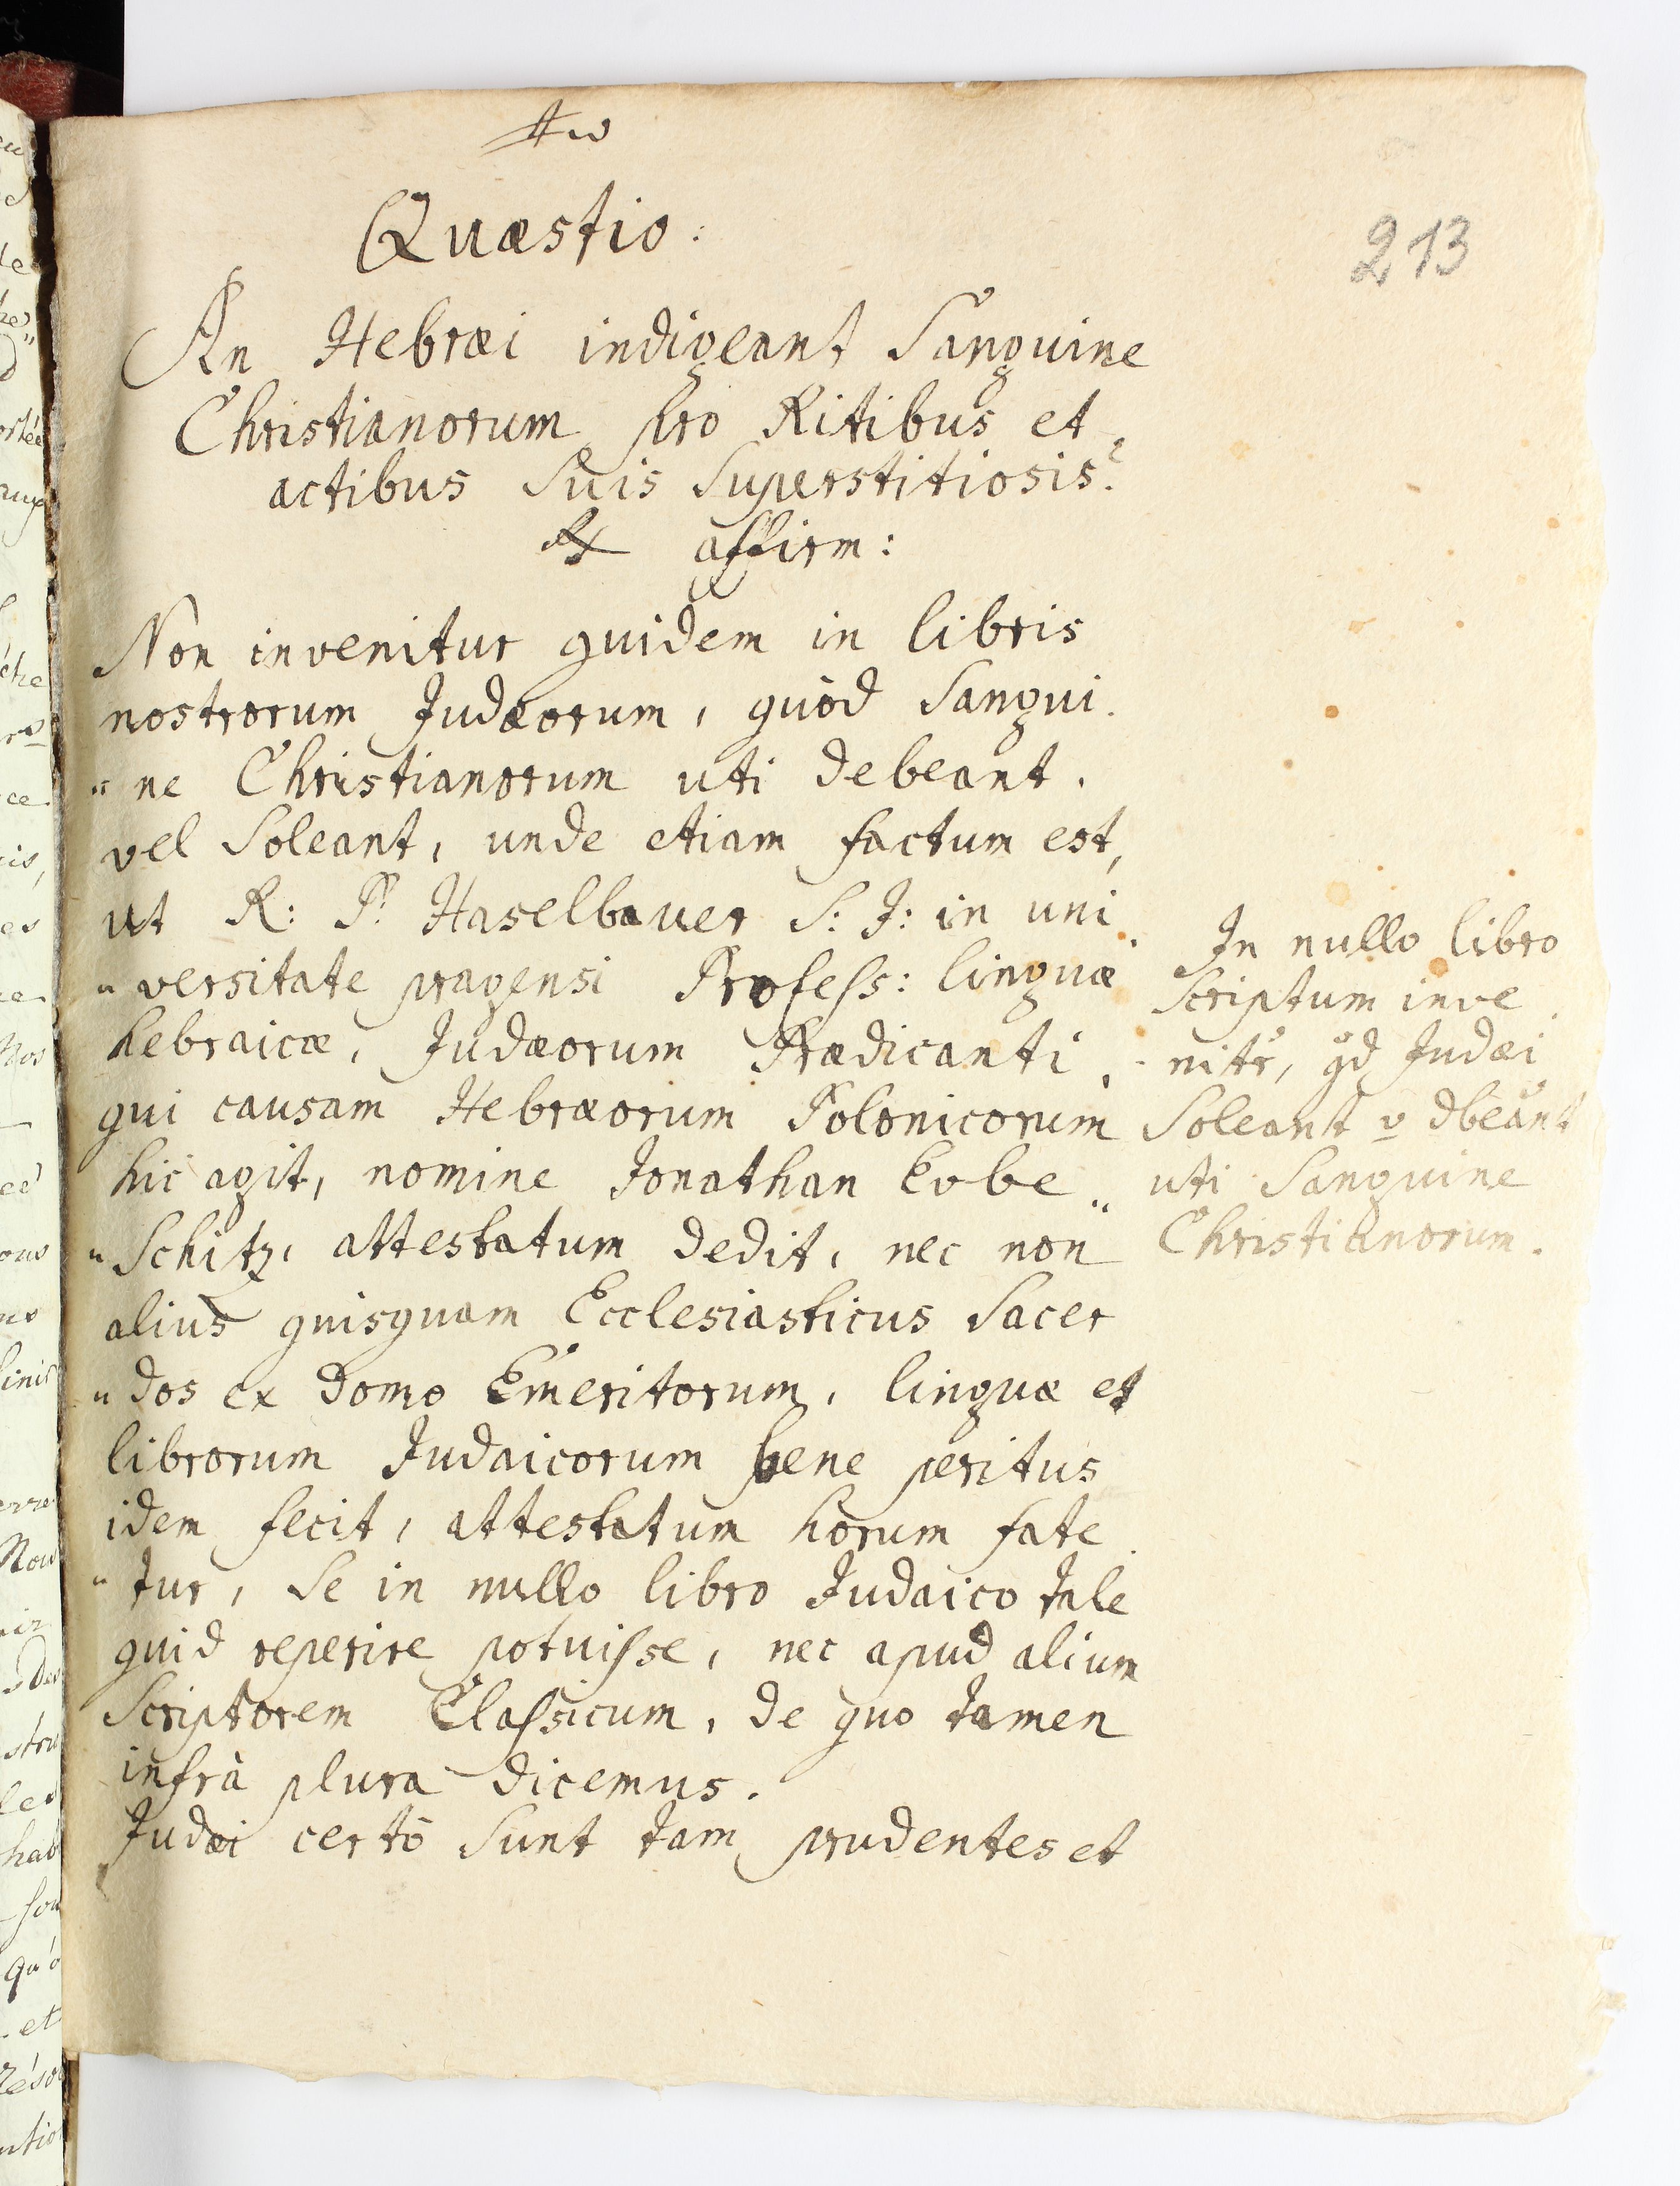 Quæstio:
213
An Hebræi indigeant Sanguine
Christianorum pro Ritibus et
actibus Suis Superstitiosis?
Rx affirm:
Non invenitur quidem in libris
nostrorum Judæorum, quòd Sangui
" ne Christianorum uti debeant.
vel Soleant, unde etiam factum est,
ut R: P: Haselbauer S: J: in uni
" versitate pragensi Profess: linguæ
hebraicæ, Judæorum Prædicanti,
qui causam Hebræorum Polonicorum
hic agit, nomine Jonathan Eybe "
" Schitz, attestatum dedit, nec non
alius quisquam Ecclesiasticus Sacer
" dos ex Domo Emeritorum, linguæ et
librorum Judaicorum bene peritus
idem fecit, attestatum horum fate
" tur, Se in nullo libro Judaico tale
quid reperire potuisse, nec apud alium
Scriptorem Classicum, de quo tamen
infrà plura dicemus.
Judæi certò Sunt tam prudentes et
In nullo libro
Scriptum inve
- nitr, qd Judæi
Soleant v dbeant
uti Sanguine
Christianorum.